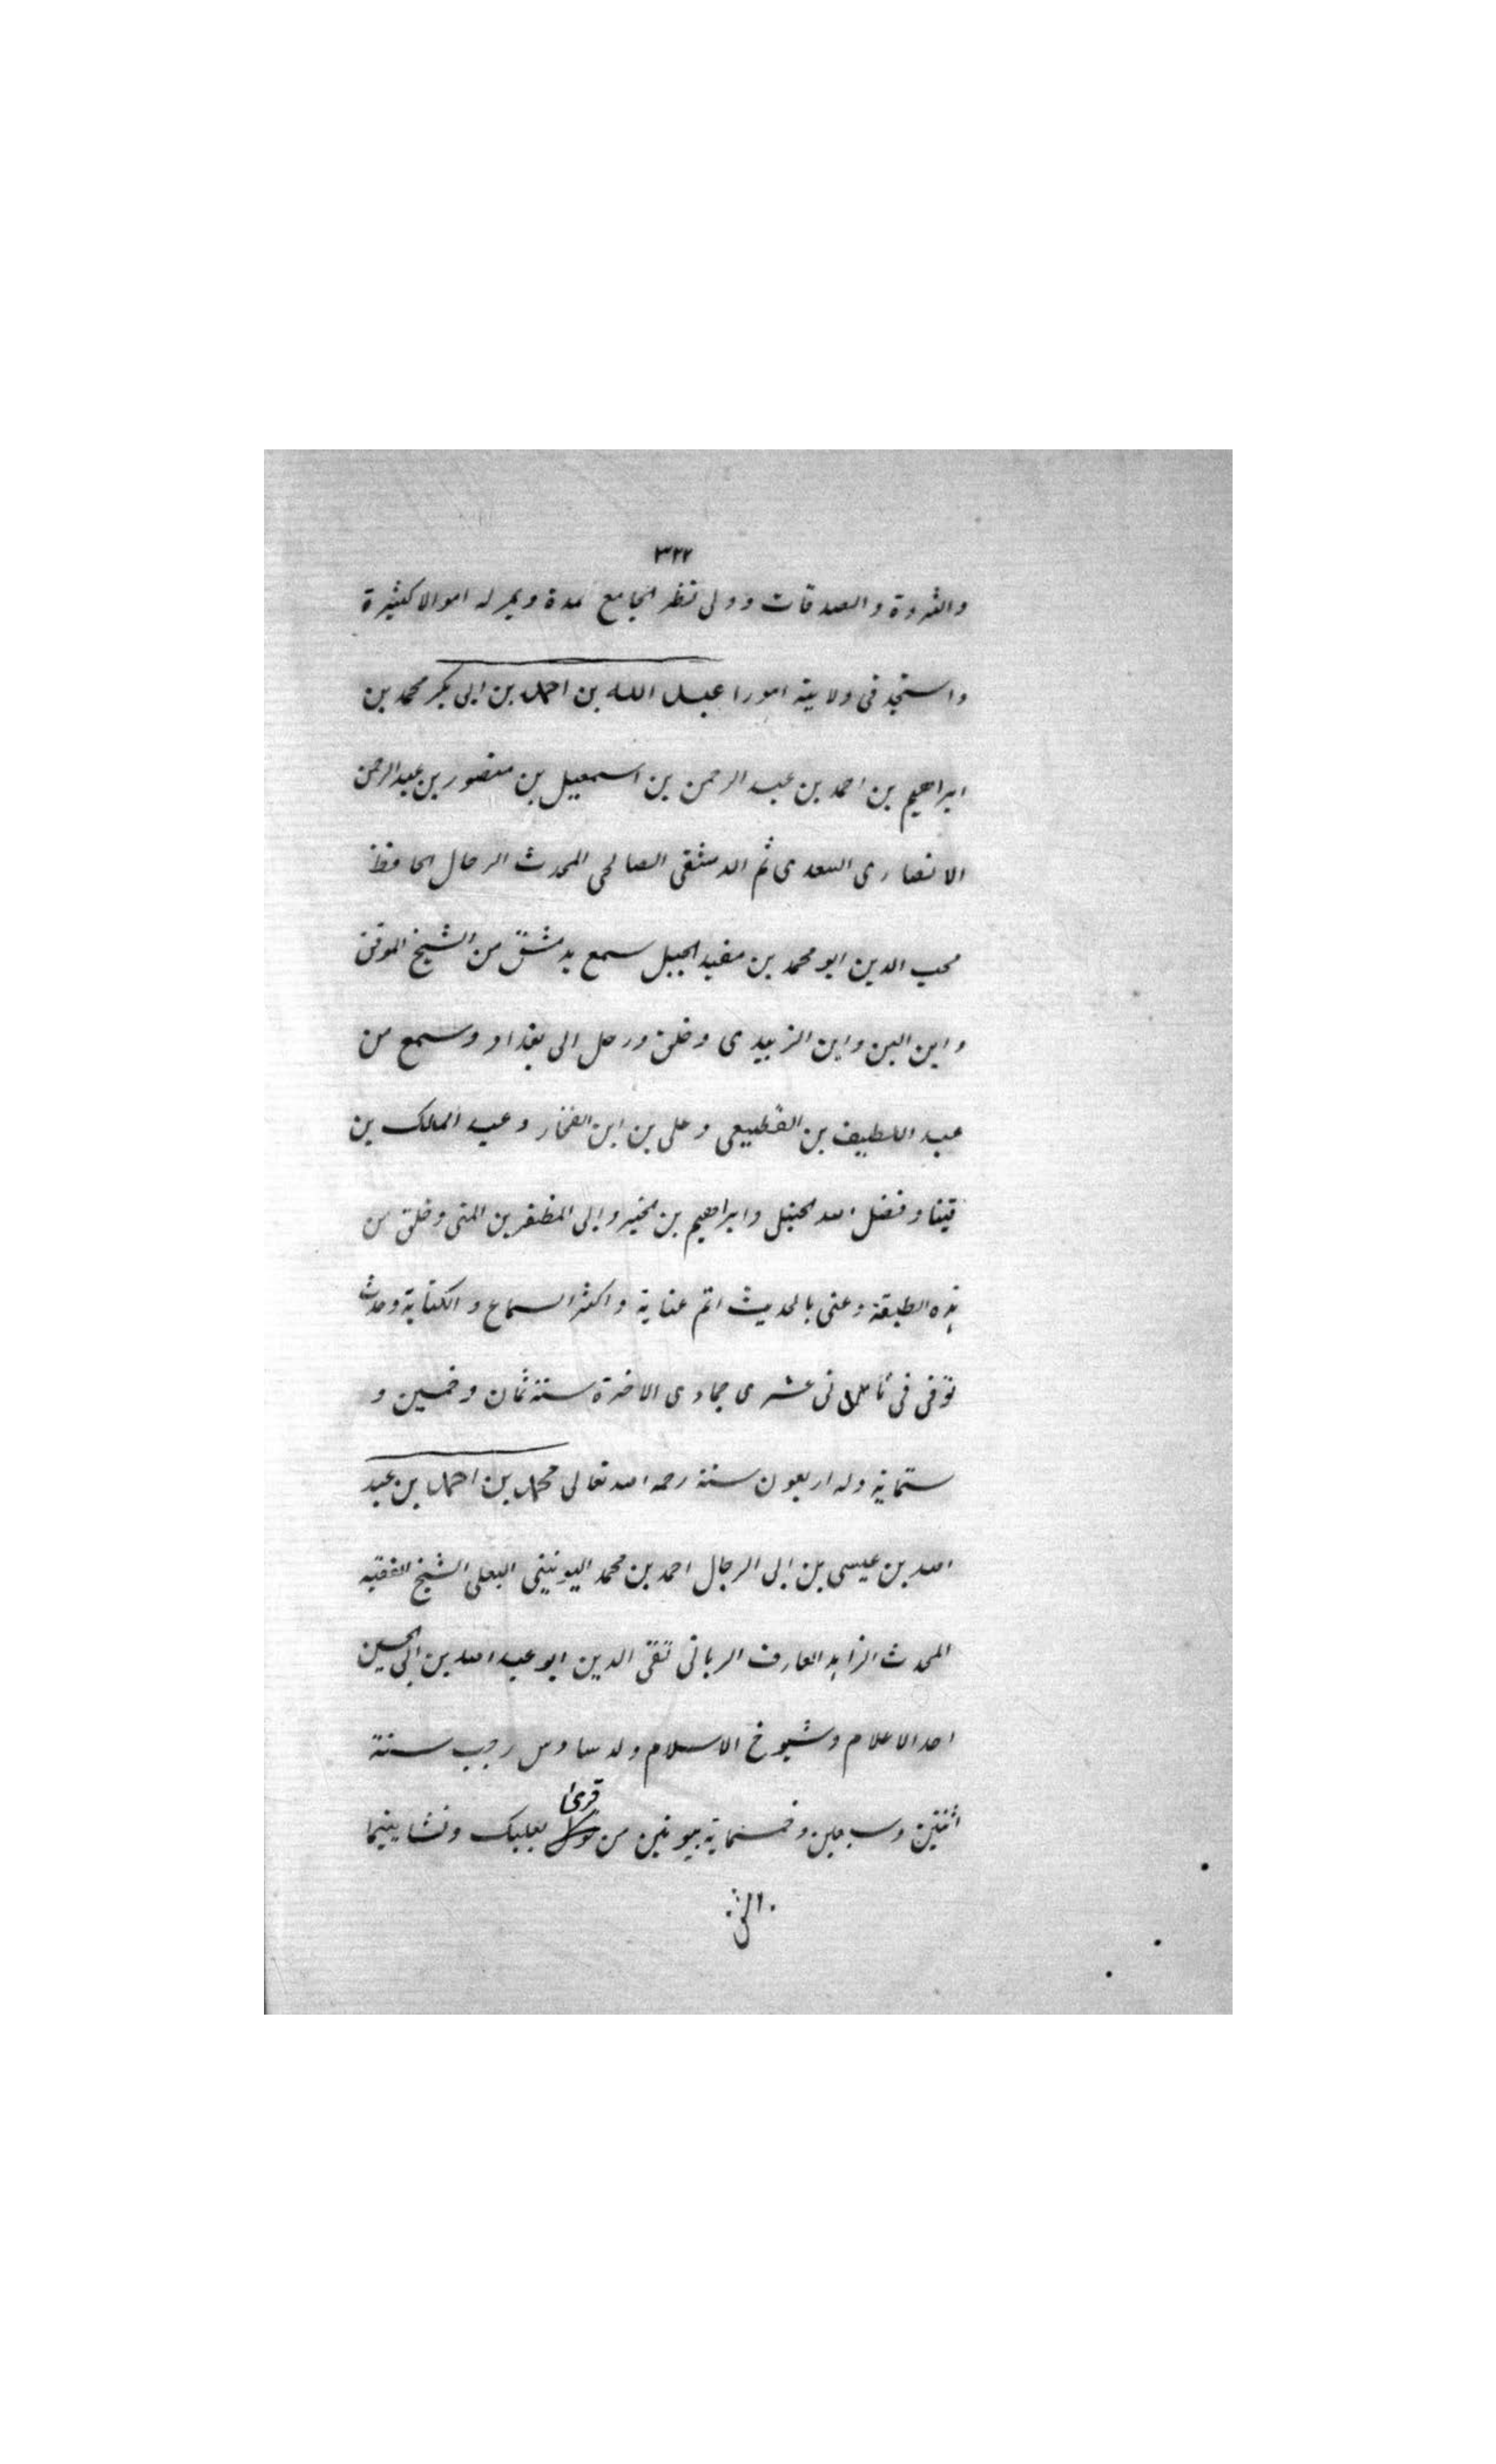 ٣٢٢
والثروة والصدقات وولى نظر الجامع مدة و له اموالا كثيرة
واستجد فى ولايته امورا عبد الله بن احمد بن ابى بكر محمد بن
ابراهيم بن احمد بن عبد الرحمن بن اسمعيل بن منصور بن عبد الرحمن
الانصارى السعدى ثم الدمشقى الصالحى المحدث الرحال الحافظ
محب الدين ابو محمد بن مفيد الجبل سمع بدمشق من الشيخ الموفق
وابن البن وابن الزبيدى وخلق ورحل الى بغداد وسمع من
عبد اللطيف بن القطيعى وعلى بن ابن الفخار وعبد الملك بن
قيبا وفضل الله الجيلى وابراهيم بن الخير وابى المظفر بن المنى وخلق من
هذه الطبقة وعنى بالحديث اتم عناية واكثر السماع والكتابة وحدث
توفى فى عشرى جمادى الاخرة سنة ثمان وخمسين و
ستماية وله اربعون سنة رحمه الله تعالى محمد بن احمد بن عبد
الله بن عيسى بن ابى الرجال احمد بن محمد اليونينى البعلى الشيخ الفقيه
المحدث الزاهد العارف الربانى تقى الدين ابو عبد الله بن ابى الحسين
احد الاعلام وشيوخ الاسلام ولد سادس رجب سنة
اثنتين وسبعين وخمسماية بيونين من قرى بعلبك ونشا يتيما